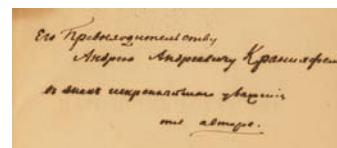 Его Превосходительству
Андрею Андреевичу
въ знакъ искренняго уваженія
отъ автора.